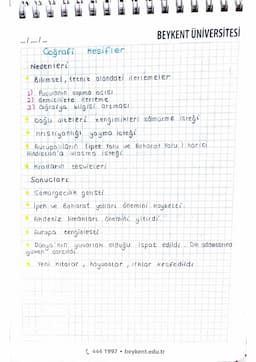 BEYKENT ÜNİVERSİTESİ
_/_/_
Coğrafi Keşifler
Nedenleri
Bilimsel, teknik alandaki ilerlemeler
1) Pusulanın sapma açısı
2) Gemicilikte ilerleme
3) Coğrafya bilgisi artması
Doğu ülkeleri zenginlikleri sömürme isteği
Hristiyanlığı yayma isteği
Avrupalıların İpek Yolu ve Baharat Yolu harici
Hindistan'a ulaşma isteği
Kralların teşvikleri
Sonuçları
Sömürgecilik gelişti
İpek ve Baharat yolları önemini kaybetti
Akdeniz limanları önemini yitirdi
Avrupa zenginleşti
Dünya'nın yuvarlak olduğu ispat edildi. Din adamlarına
güven sarsıldı.
Yeni kıtalar, hayvanlar, ırklar keşfedildi
444 1997 • beykent.edu.tr